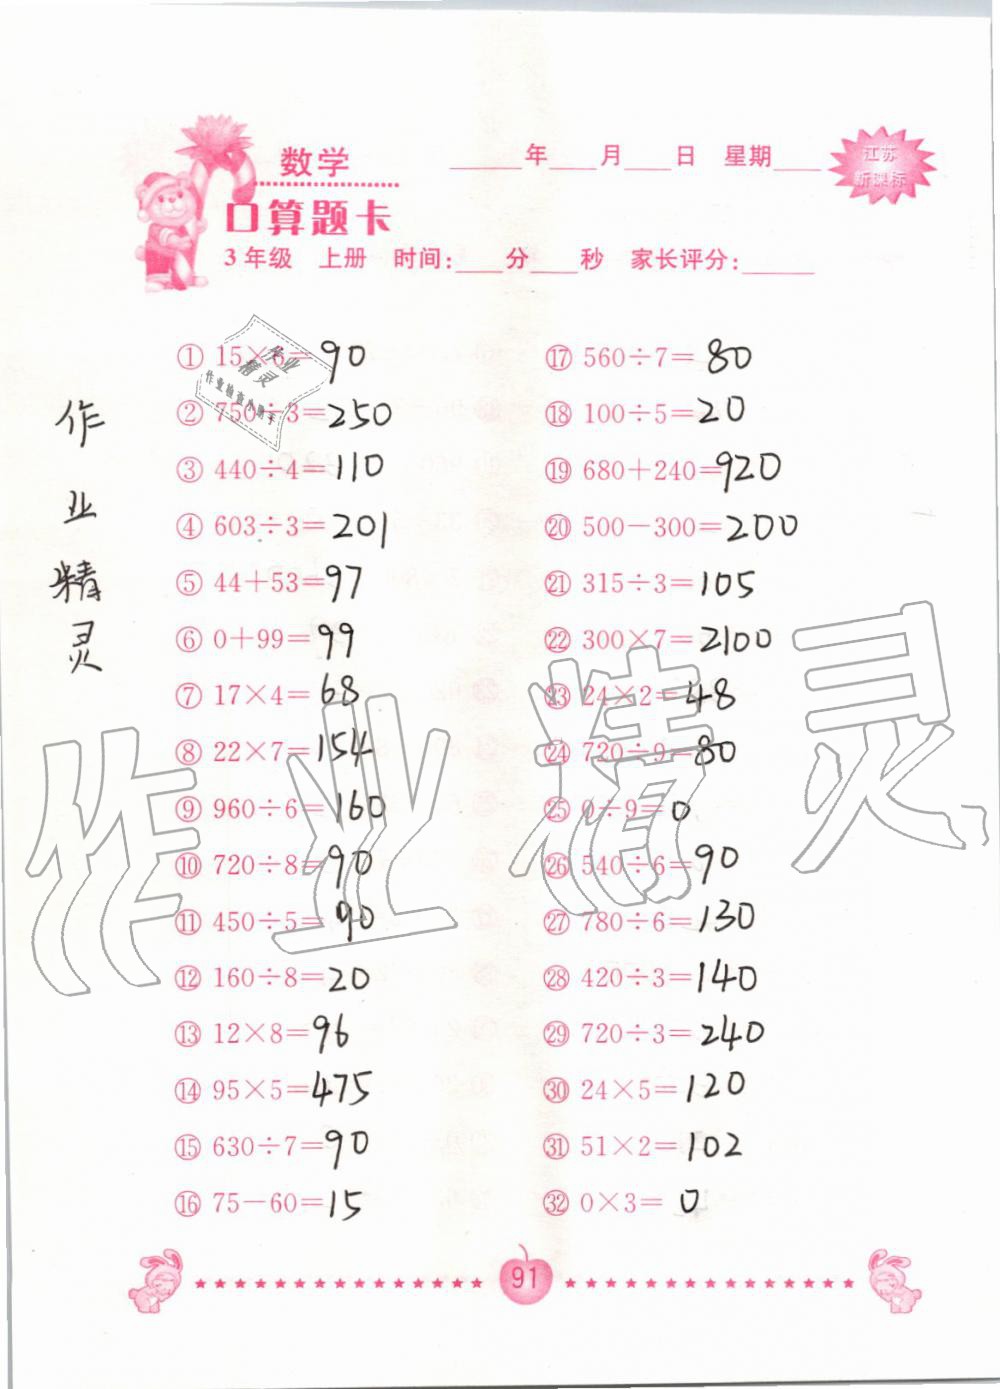 数学
____年___月___日 星期___
江苏
新课标
口算题卡
3年级 上册 时间:___分___秒 家长评分:_____
① 15×6=90
② 750÷3=250
③ 440÷4=110
④ 603÷3=201
⑤ 44+53=97
⑥ 0+99=99
⑦ 17×4=68
⑧ 22×7=154
⑨ 960÷6=160
⑩ 720÷8=90
⑪ 450÷5=90
⑫ 160÷8=20
⑬ 12×8=96
⑭ 95×5=475
⑮ 630÷7=90
⑯ 75-60=15
⑰ 560÷7=80
⑱ 100÷5=20
⑲ 680+240=920
⑳ 500-300=200
㉑ 315÷3=105
㉒ 300×7=2100
㉓ 24×2=48
㉔ 720÷9=80
㉕ 0÷9=0
㉖ 540÷6=90
㉗ 780÷6=130
㉘ 420÷3=140
㉙ 720÷3=240
㉚ 24×5=120
㉛ 51×2=102
㉜ 0×3=0
作业精灵
作业
精灵
作业检查小助手
作业精灵
91